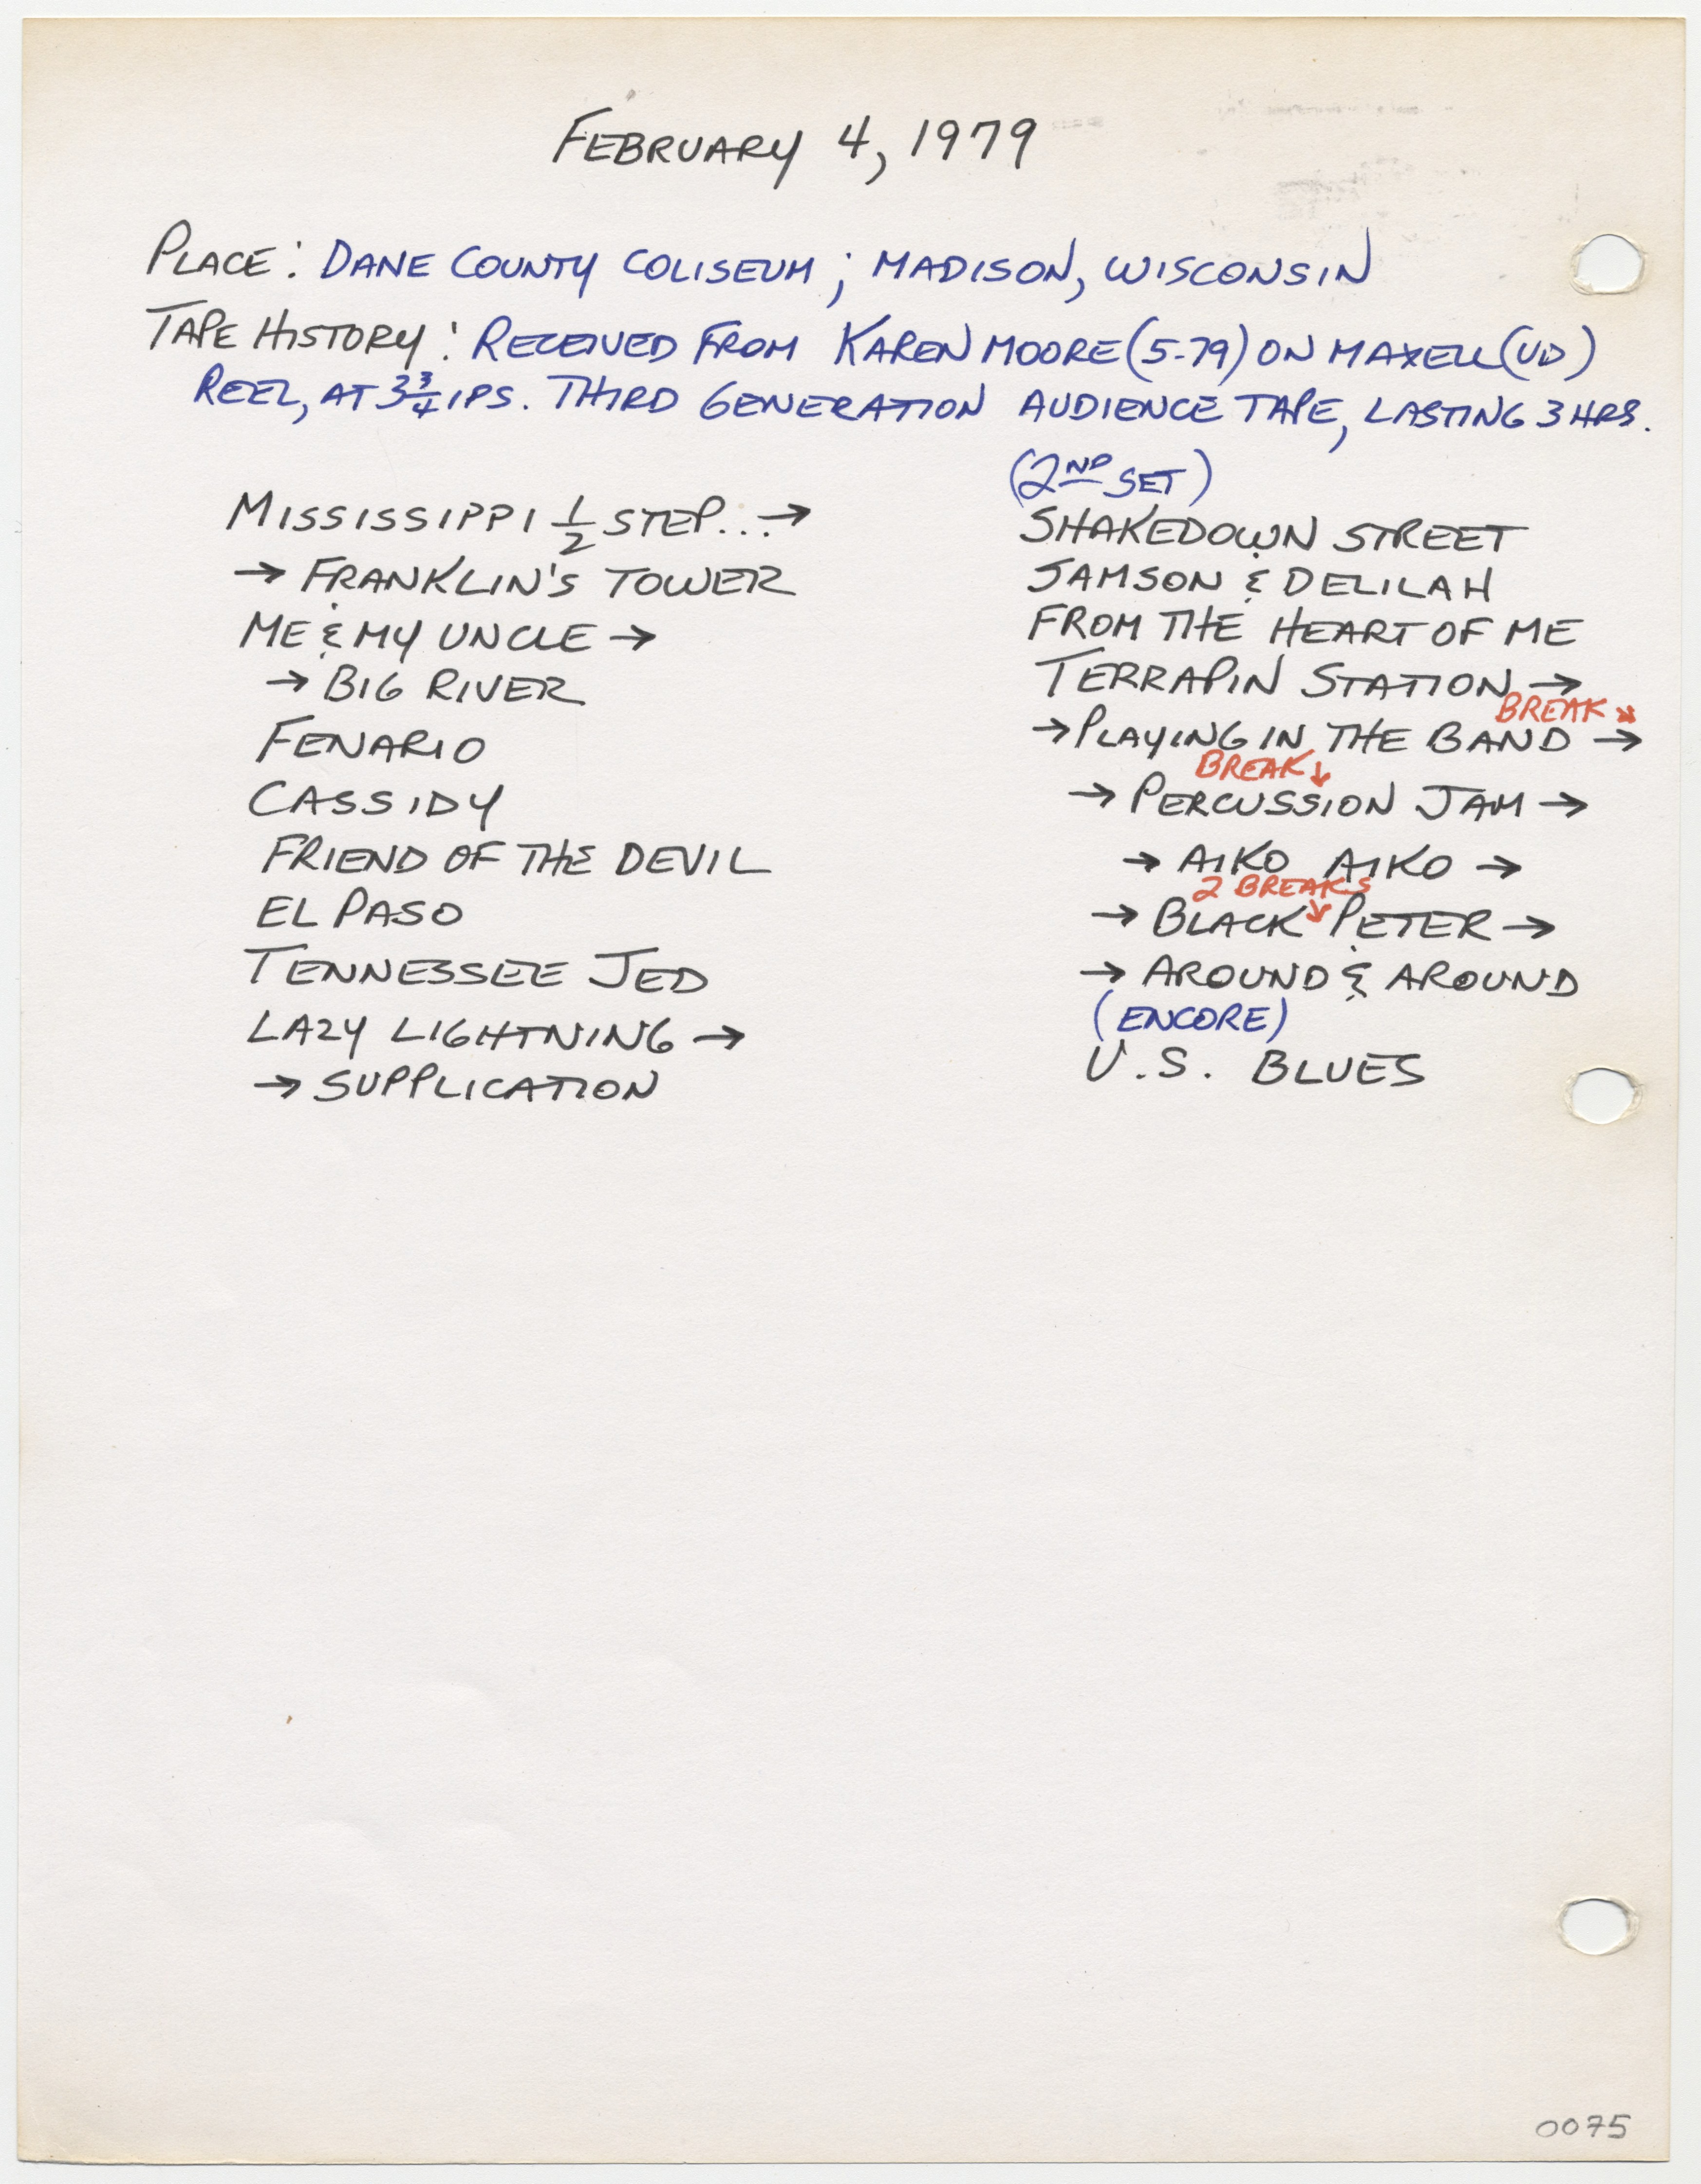 FEBRUARY 4, 1979
PLACE: DANE COUNTY COLISEUM; MADISON, WISCONSIN
TAPE HISTORY: RECEIVED FROM KAREN MOORE (5-79) ON MAXELL (UD)
REEL, AT 3 3/4 IPS. THIRD GENERATION AUDIENCE TAPE, LASTING 3 HRS.
MISSISSIPPI 1/2 STEP... →
→ FRANKLIN'S TOWER
ME & MY UNCLE →
→ BIG RIVER
FENARIO
CASSIDY
FRIEND OF THE DEVIL
EL PASO
TENNESSEE JED
LAZY LIGHTNING →
→ SUPPLICATION
(2ND SET)
SHAKEDOWN STREET
JAMSON & DELILAH
FROM THE HEART OF ME
TERRAPIN STATION →
BREAK ↘
→ PLAYING IN THE BAND →
BREAK ↓
→ PERCUSSION JAM →
→ AIKO AIKO →
2 BREAKS ↓
→ BLACK PETER →
→ AROUND & AROUND
(ENCORE)
U.S. BLUES
0075